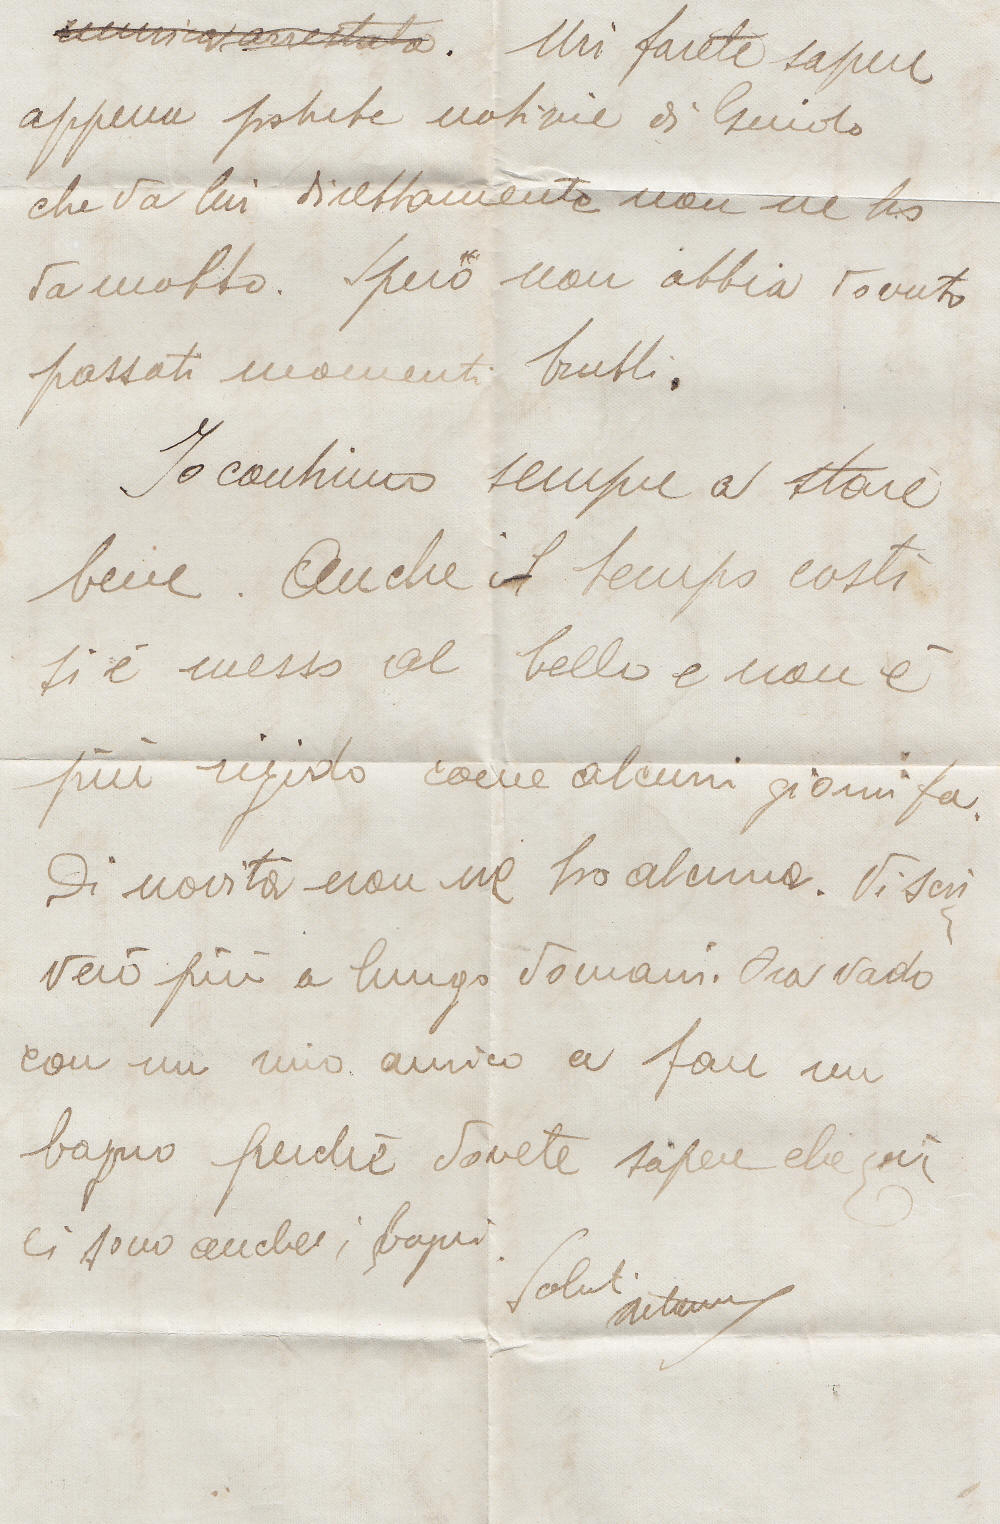 arrestata. Mi farete sapere
appena potrete notizie di Guido
che da lui direttamente non ne ho
da molto. Però non abbia dovuto
passati momenti brutti.
Io continuo sempre a stare
bene. Anche il tempo costì
si è messo al bello e non è
più rigido come alcuni giorni fa.
Di novità non ne ho alcuna. Vi scri
verò più a lungo domani. Ora vado
con un mio amico a fare un
bagno perchè dovete sapere che qui
ci sono anche i bagni.
Saluti